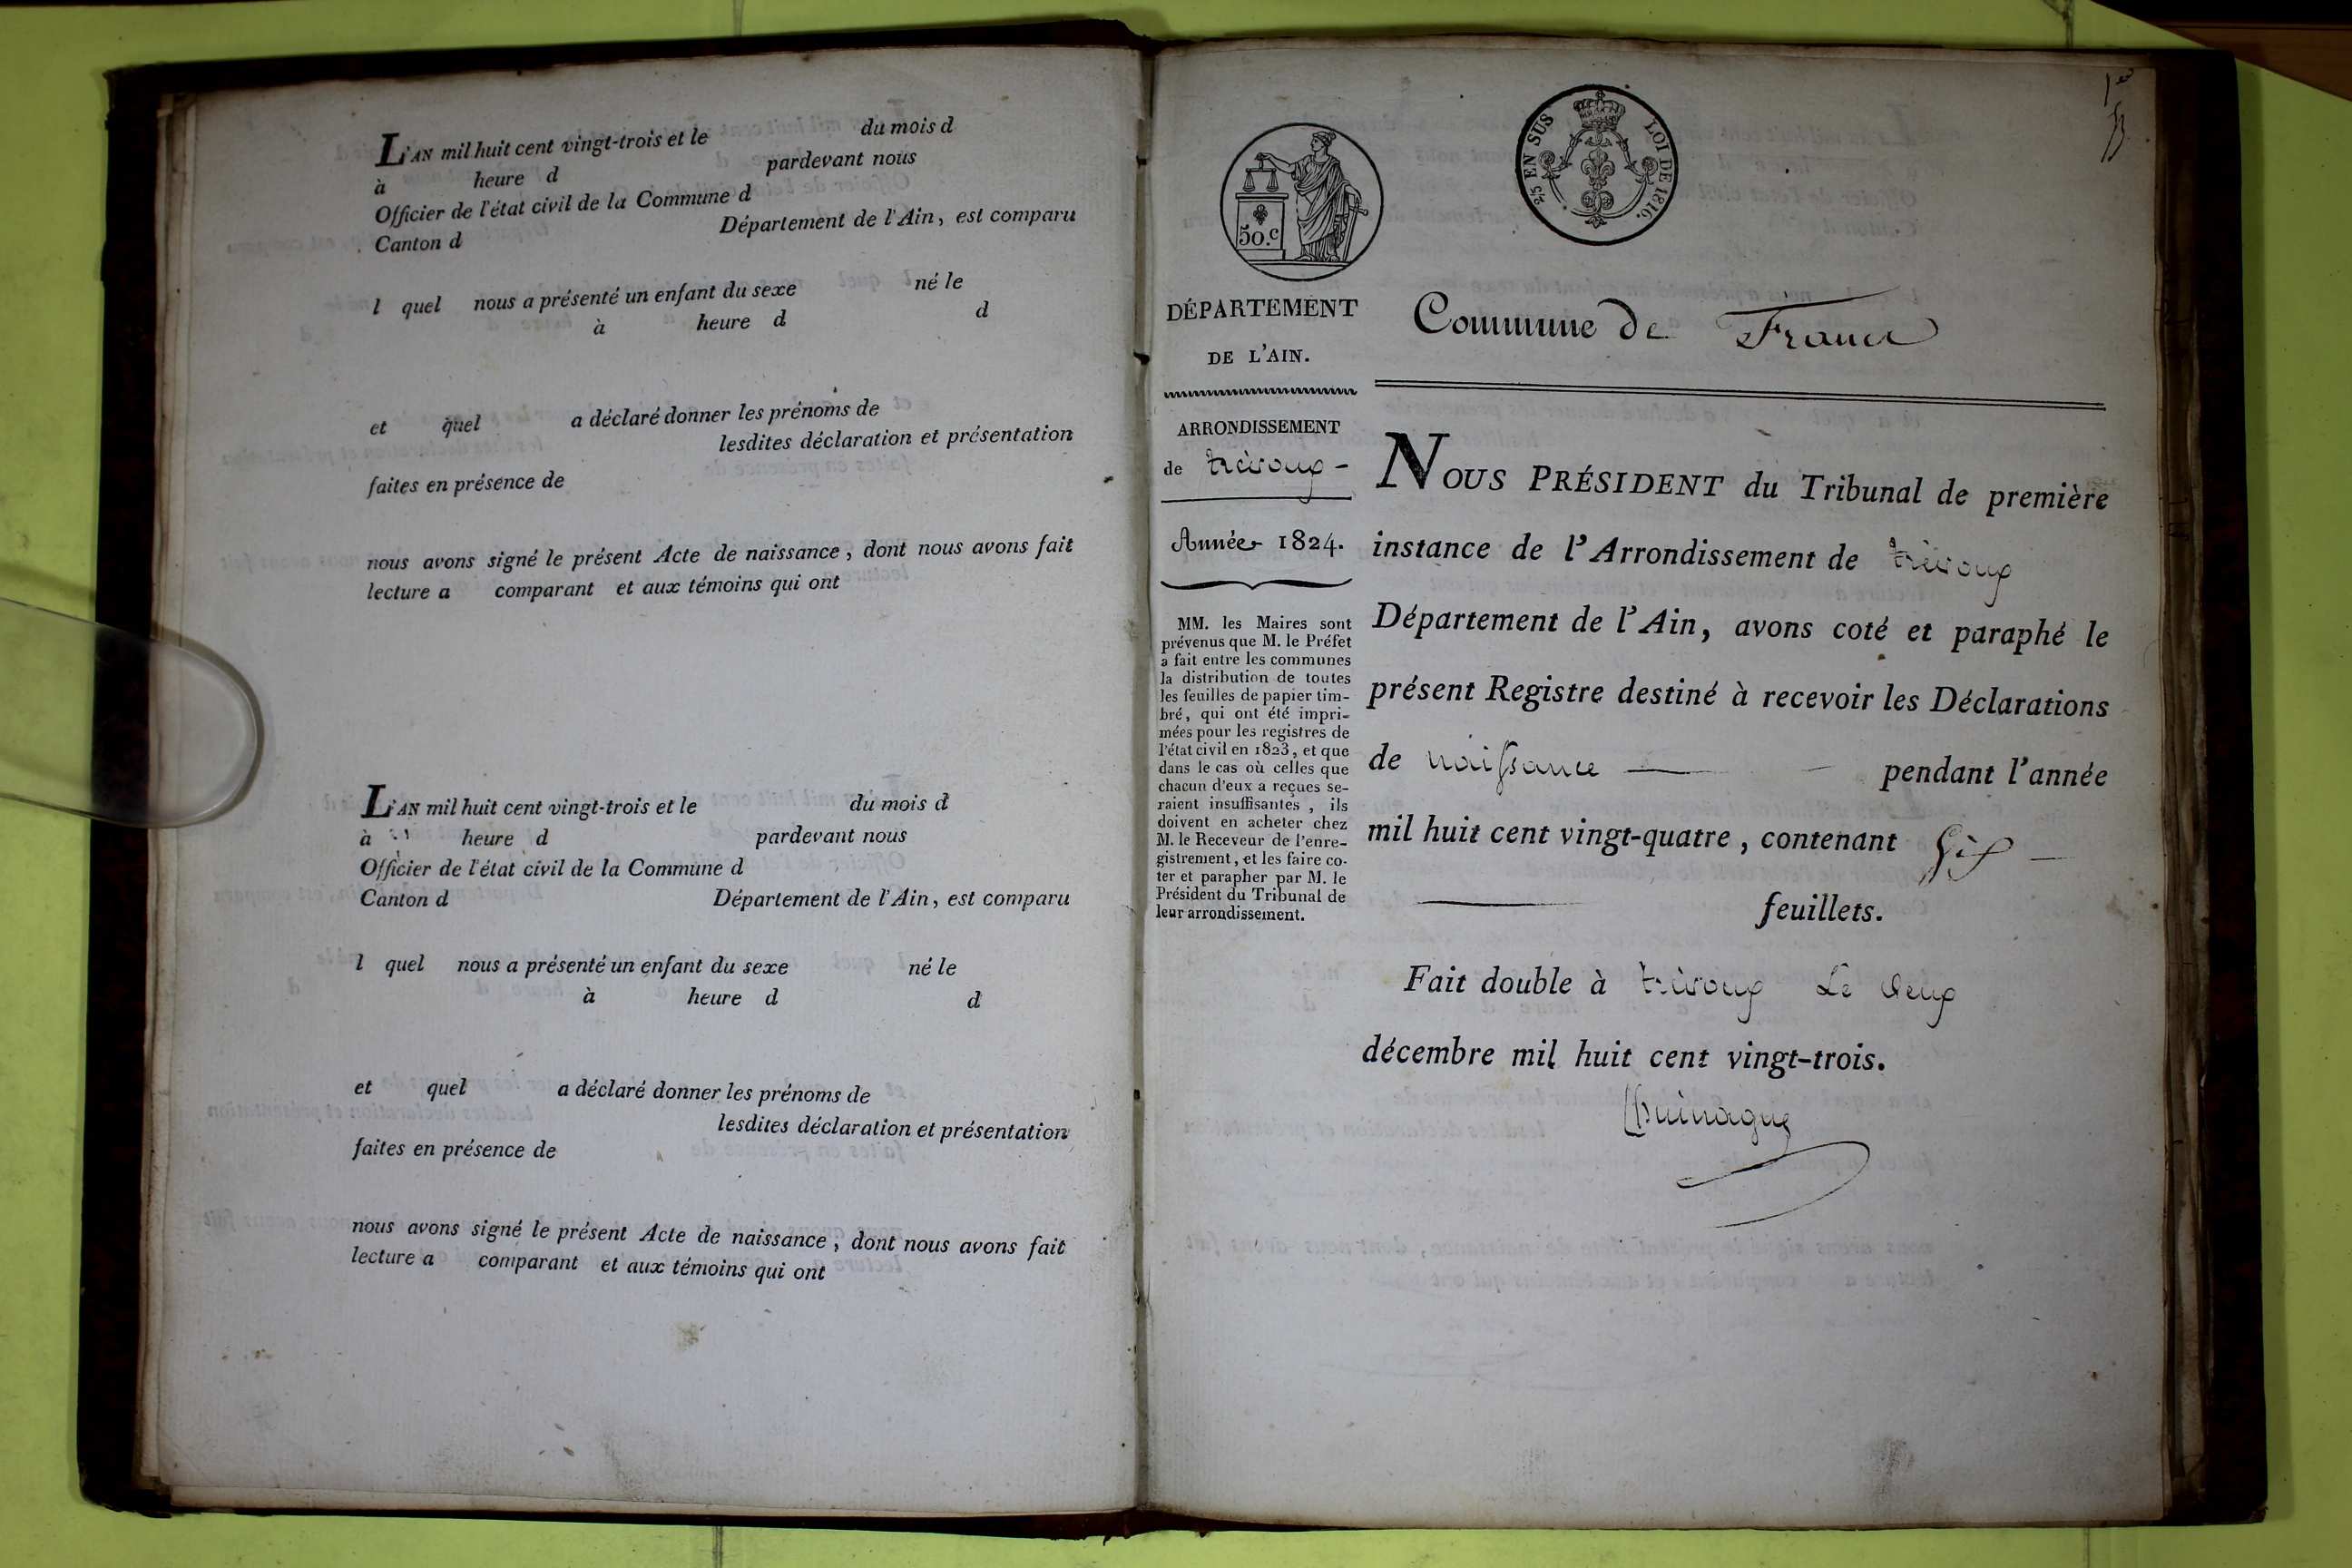 L'AN mil huit cent vingt-trois et le du mois d
à heure d pardevant nous
Officier de l'état civil de la Commune d
Canton d Département de l'Ain, est comparu
l quel nous a présenté un enfant du sexe né le
à heure d d
et quel a déclaré donner les prénoms de
lesdites déclaration et présentation
faites en présence de
nous avons signé le présent Acte de naissance, dont nous avons fait
lecture a comparant et aux témoins qui ont
L'AN mil huit cent vingt-trois et le du mois d
à heure d pardevant nous
Officier de l'état civil de la Commune d
Canton d Département de l'Ain, est comparu
l quel nous a présenté un enfant du sexe né le
à heure d d
et quel a déclaré donner les prénoms de
lesdites déclaration et présentation
faites en présence de
nous avons signé le présent Acte de naissance, dont nous avons fait
lecture a comparant et aux témoins qui ont
1er
50.c
2/5 EN SUS LOI DE 1816.
DÉPARTEMENT
DE L'AIN.
ARRONDISSEMENT
de trévoux -
Année 1824.
MM. les Maires sont
prévenus que M. le Préfet
a fait entre les communes
la distribution de toutes
les feuilles de papier tim-
bré, qui ont été impri-
mées pour les registres de
l'état civil en 1823, et que
dans le cas où celles que
chacun d'eux a reçues se-
raient insuffisantes, ils
doivent en acheter chez
M. le Receveur de l'enre-
gistrement, et les faire co-
ter et parapher par M. le
Président du Tribunal de
leur arrondissement.
Commune de Frans
NOUS PRÉSIDENT du Tribunal de première
instance de l'Arrondissement de trévoux
Département de l'Ain, avons coté et paraphé le
présent Registre destiné à recevoir les Déclarations
de naissance — pendant l'année
mil huit cent vingt-quatre, contenant Six —
— feuillets.
Fait double à trévoux Le deux
décembre mil huit cent vingt-trois.